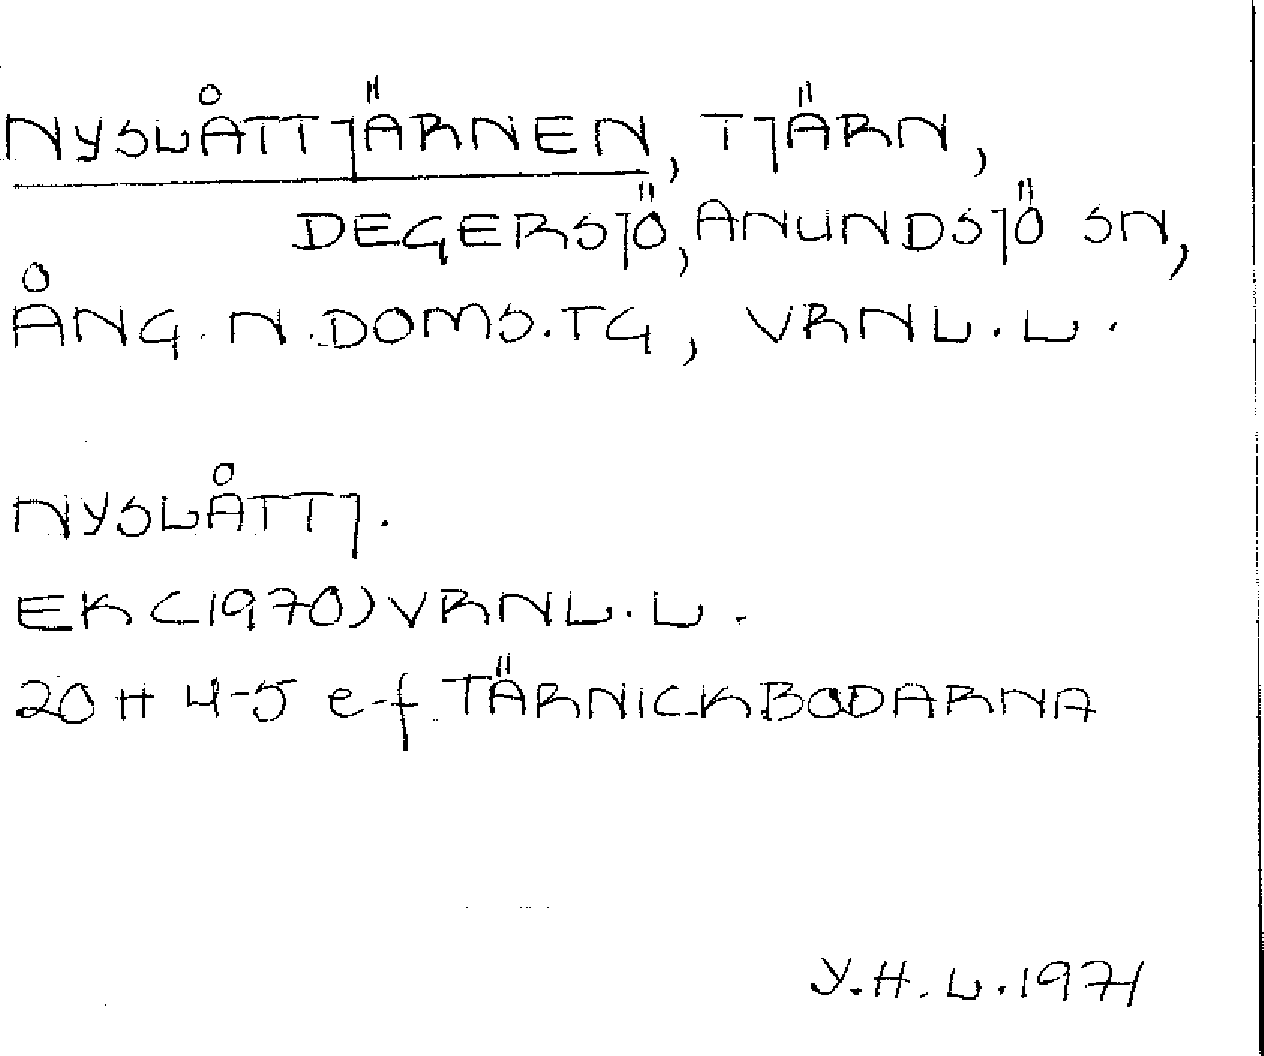 NYSLÅTTJÄRNEN, TJÄRN,
DEGERSJÖ, ANUNDSJÖ SN,
ÅNG. N. DOMS. TG, VRNL. L.
NYSLÅTTJ.
EK (1970) VRNL. L.
20 H 4-5 e-f TÄRNICKBODARNA
Y. H. L. 1971